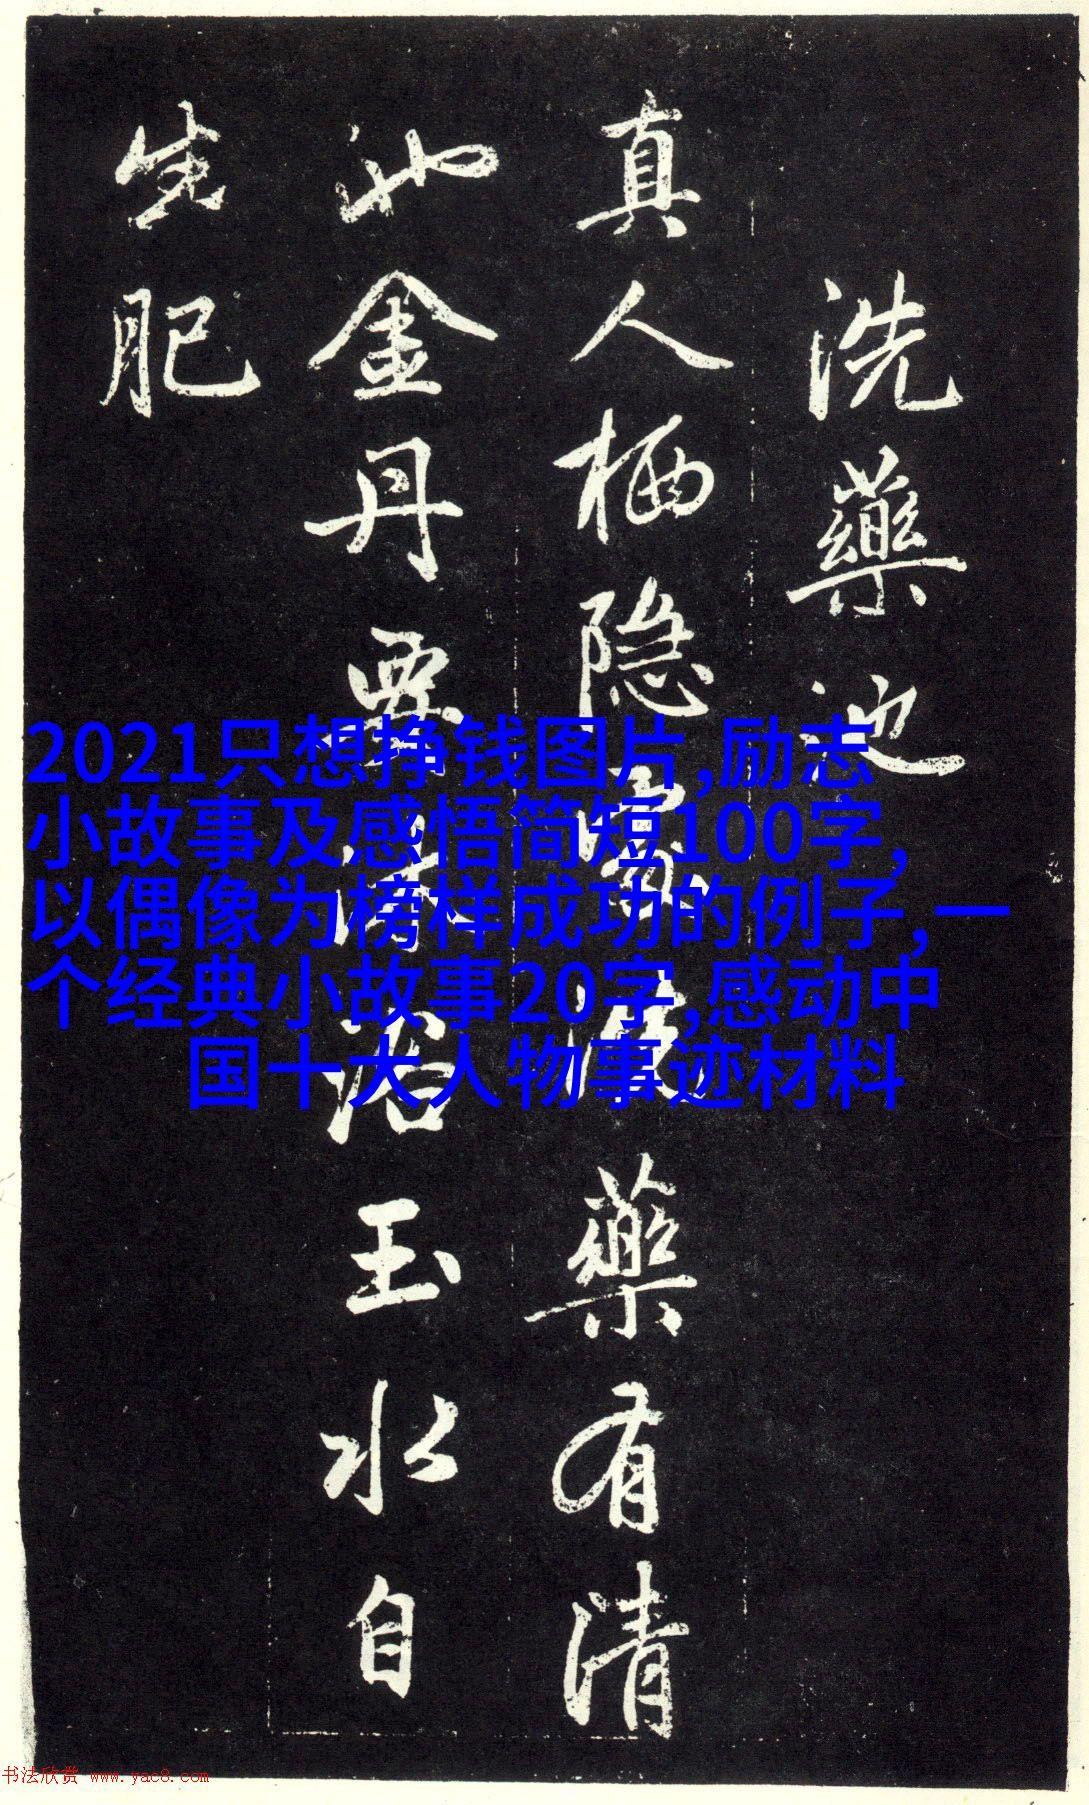 洗藥池
真人栖隐處洗藥有清
池金丹要沐浴玉水自
生肥
2021只想挣钱图片,励志
小故事及感悟简短100字,
以偶像为榜样成功的例子,一
个经典小故事20字,感动中
国十大人物事迹材料
书法欣赏 www.yac8.com